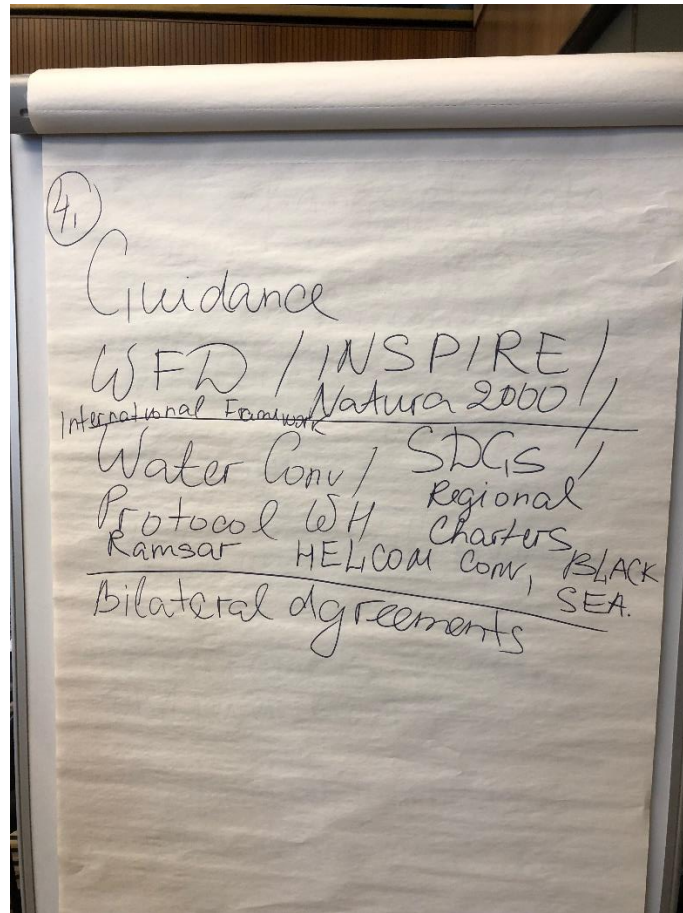 4.
Guidance
WFD / INSPIRE /
International Framework Natura 2000 /
Water Conv / SDGs /
Protocol WH Regional Charters,
Ramsar HELICOM Conv, BLACK SEA.
Bilateral agreements